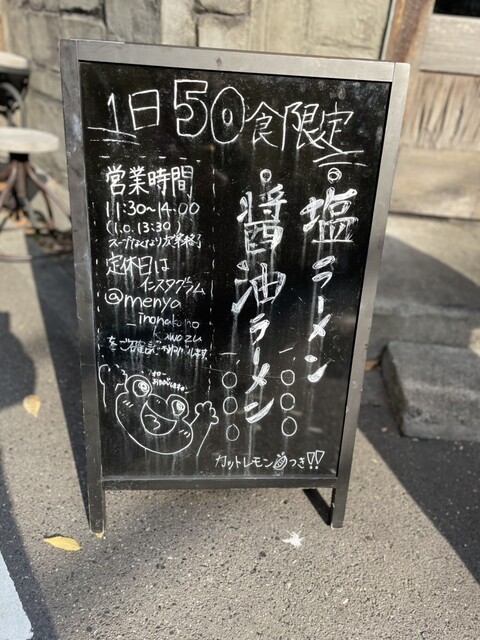 1日50食限定
・塩ラーメン
一〇〇〇
・醤油ラーメン
一〇〇〇
営業時間
11:30~14:00
(L.O. 13:30)
スープなくなり次第終了
定休日は
インスタグラム
@menya
_inonakano
kawazu
をご確認
カットレモンつき!!